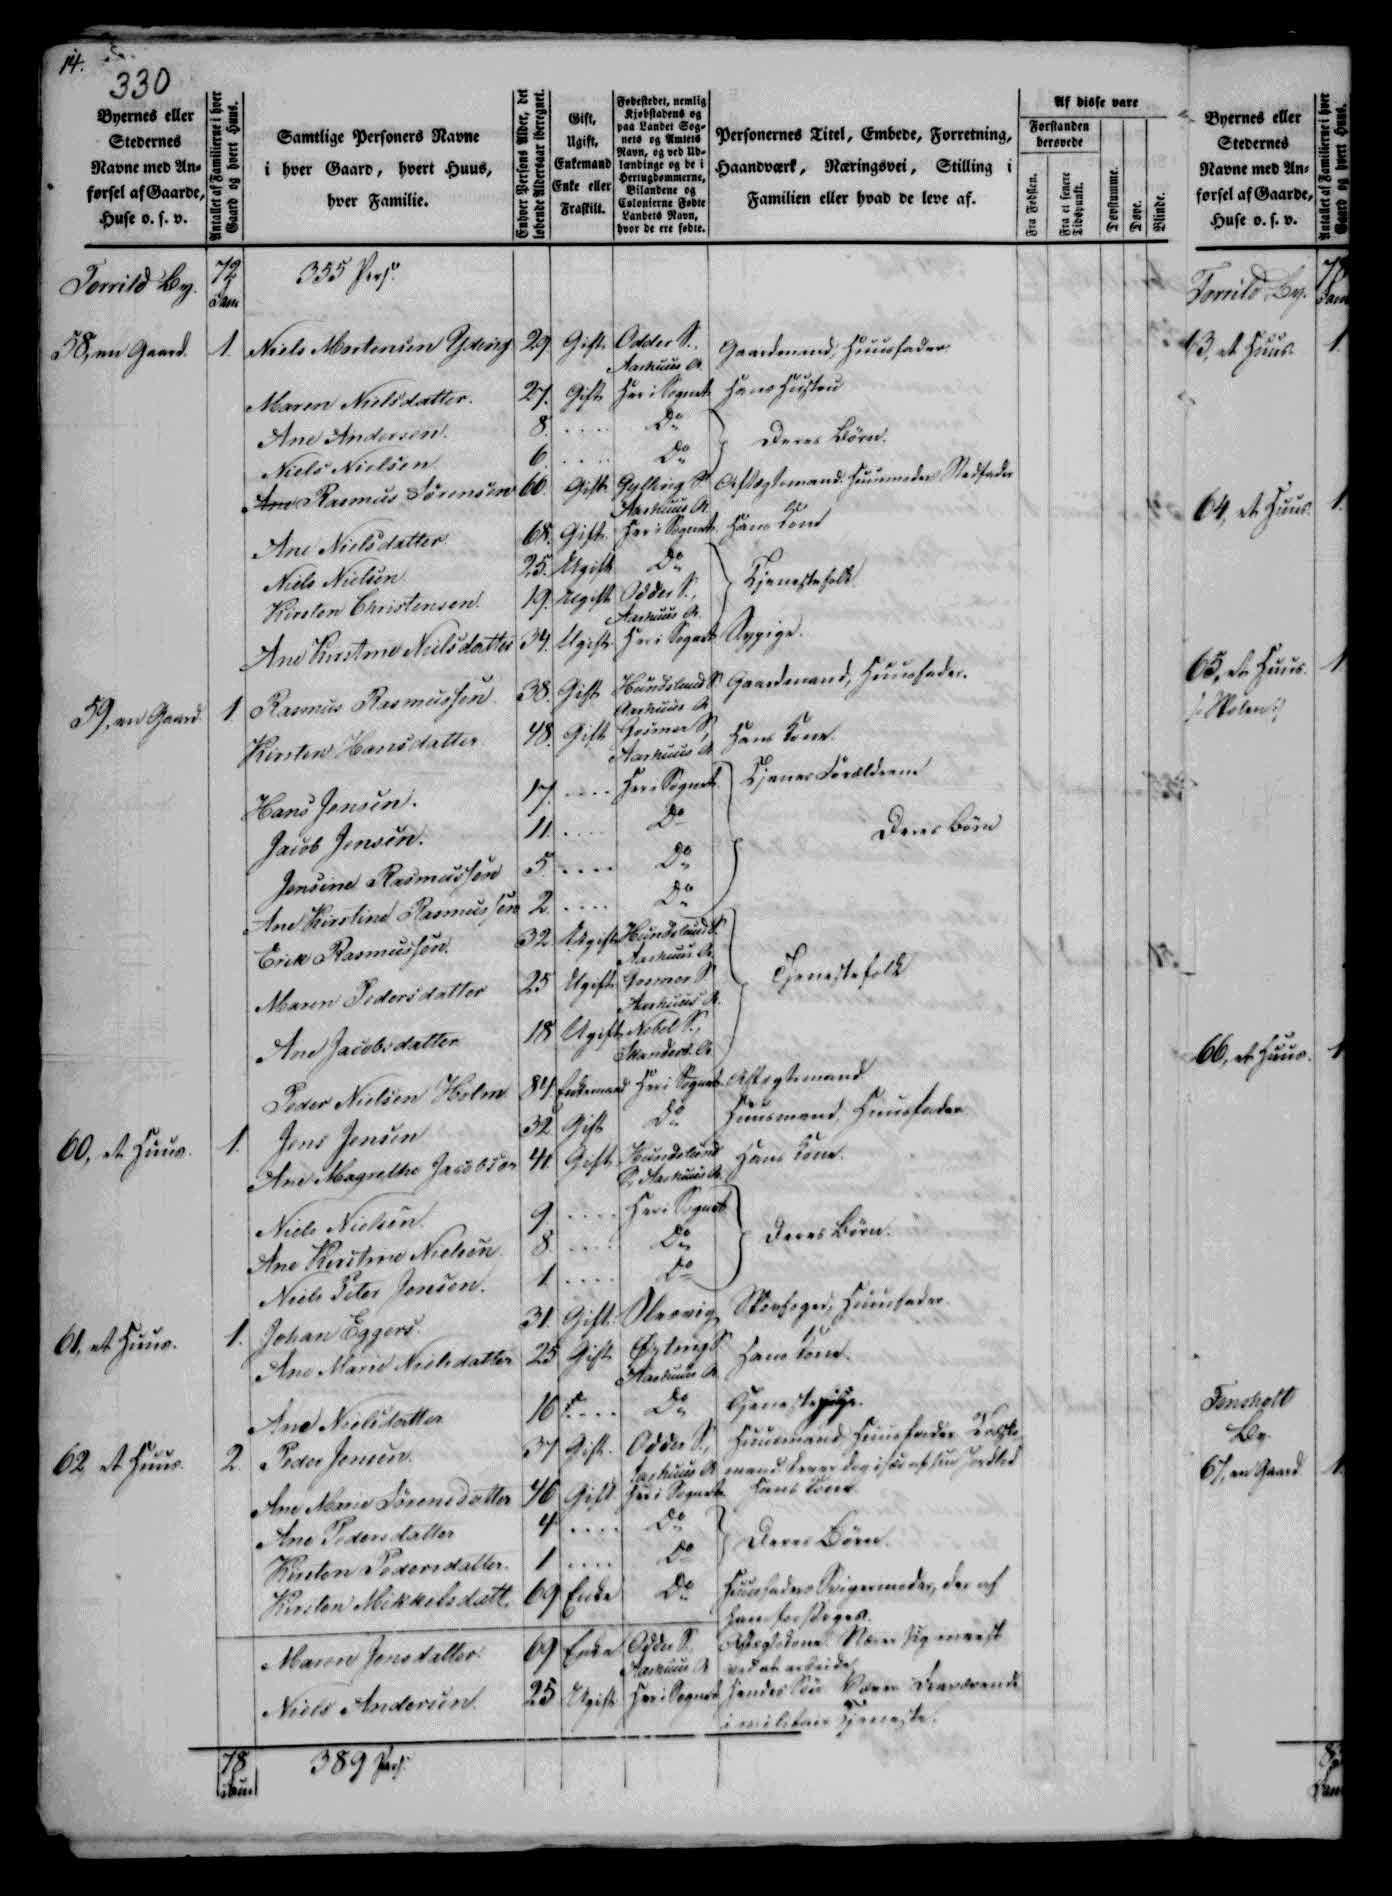 14.
330
Byernes eller
Stedernes
Navne med An-
førsel af Gaarde,
Huse o. s. v.
Antallet af Familierne i hver
Gaard og hvert Huus.
Samtlige Personers Navne
i hver Gaard, hvert Huus,
hver Familie.
Enhver Persons Alder, det
løbende Aldersaar iberegnet.
Gift,
Ugift,
Enkemand
Enke eller
Fraskilt.
Fødestedet, nemlig
Kjøbstadens og
paa Landet Sog-
nets og Amtets
Navn, og ved Ud-
lændinge og de i
Hertugdømmerne,
Bilandene og
Colonierne Fødte
Landets Navn,
hvor de ere fødte.
Personernes Titel, Embede, Forretning,
Haandværk, Næringsvei, Stilling i
Familien eller hvad de leve af.
Af disse vare
Forstanden
berøvede
Fra Fødslen.
Fra et senere
Tidspunkt.
Døvstumme.
Døve.
Blinde.
Torrild By. 72 Fam 355 Pers.
58, en Gaard. 1. Niels Mortensen Yding 29 Gift Odder S. Aarhuus A. Gaardmand, Huusfader
Maren Nielsdatter. 27. Gift Her i Sognet Hans Hustru
Ane Andersen. 8. .... Do } Deres Børn.
Niels Nielsen 6 .... Do
Rasmus Sørensen 66. Gift Gylling S. Aarhuus A. Aftægtsmand, Huusmoders Stedfader
Ane Nielsdatter 68. Gift Her i Sognet Hans Kone
Niels Nielsen 25. Ugift Do } Tjenestefolk
Kirsten Christensen. 19. Ugift Odder S., Aarhuus A.
Ane Kirstine Nielsdatter 34. Ugift Her i Sognet Sypige.
59, en Gaard. 1 Rasmus Rasmussen 38. Gift Hundslund S. Aarhuus A. Gaardmand, Huusfader.
Kirsten Hansdatter 48. Gift Gosmer S., Aarhuus A. Hans Kone.
Hans Jensen. 17. .... Her i Sognet } Tjener Forældrene
Jacob Jensen. 11. .... Do Deres Børn
Jensine Rasmussen 5. .... Do
Ane Kirstine Rasmussen 2. .... Do
Erik Rasmussen. 32 Ugift Hundslund S. Aarhuus A. } Tjenestefolk
Maren Pedersdatter 25 Ugift Gosmer S. Aarhuus A.
Ane Jacobsdatter 18 Ugift Nebel S., Skanderb. A.
Peder Nielsen Holm 84 Enkemand Her i Sognet Aftægtsmand
60, et Huus. 1. Jens Jensen 32 Gift Do Huusmand, Huusfader
Ane Magrethe Jacobsen 41 Gift Hundslund S. Aarhuus A. Hans Kone.
Niels Nielsen. 9 .... Her i Sognet } Deres Børn.
Ane Kirstine Nielsen 8 .... Do
Niels Peter Jensen. 1. .... Do
61, et Huus. 1. Johan Eggers. 31. Gift Slesvig Skovfoged, Huusfader
Ane Marie Nielsdatter 25 Gift Aarhuus A. Hans Kone.
Ane Nielsdatter 16 .... Do Tjenestepige.
62 et Huus. 2. Peder Jensen. 37 Gift Odder S., Aarhuus A. Huusmand, Huusfader
Ane Marie Sørensdatter 46 Gift Her i Sognet Hans Kone
Ane Pedersdatter 4 .... Do } Deres Børn.
Kirsten Pedersdatter. 1 .... Do
Kirsten Mikkelsdatt. 69 Enke Do Huusfaders Svigermoder, der af
ham forsørges.
Maren Jensdatter. 69 Enke Odder S. Aarhuus A Aftægtskone. Nærer sig meest
ved at arbeide
Niels Andersen. 25 Ugift Her i Sognet Hendes Søn
i militair Tjeneste.
78 Fam 389 Pers.
Byernes eller
Stedernes
Navne med An-
førsel af Gaarde,
Huse o. s. v.
Antallet af Familierne i hver
Gaard og hvert Huus.
Torrild By. 78 Fam
63, et Huus. 1.
64, et Huus. 1.
65, et Huus. 1
/: Skolen :/
66, et Huus. 1
Fensholt
By.
67, en Gaard. 1.